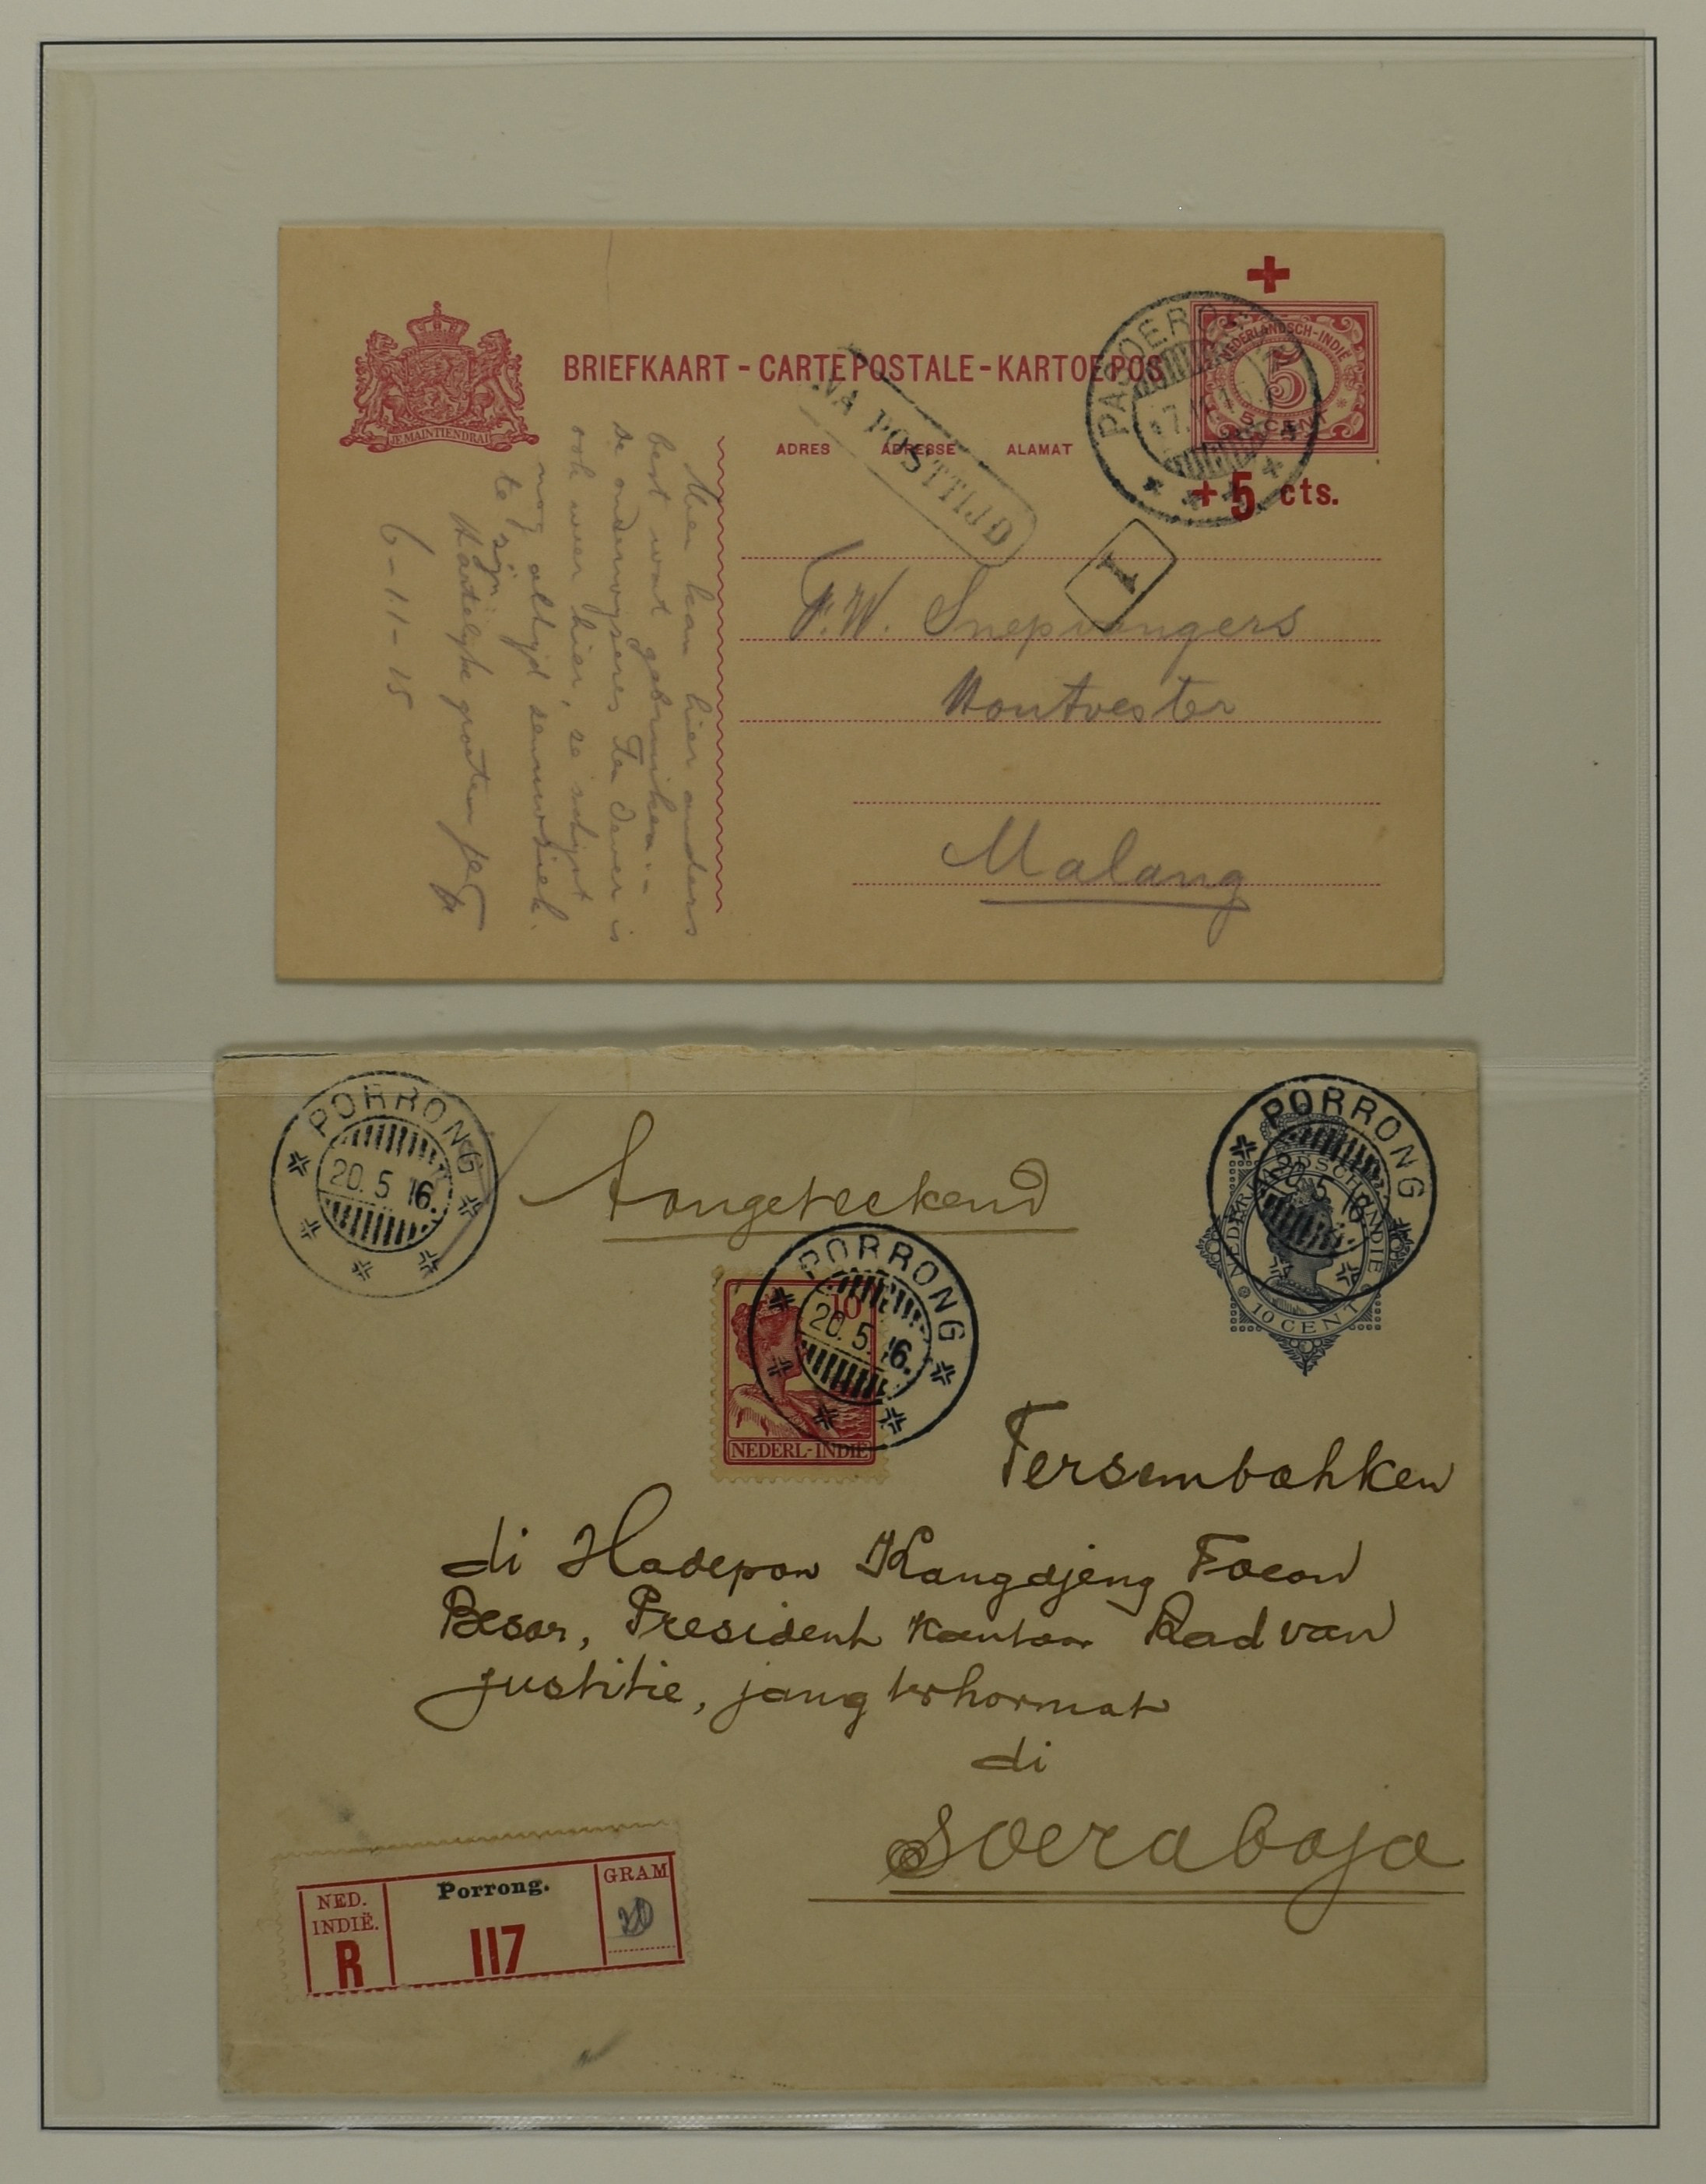 JE MAINTIENDRAI
BRIEFKAART - CARTE POSTALE - KARTOE POS
NEDERLANDSCH-INDIË
5
5 CENT
+ 5 cts.
PASOEROE
NA POSTTIJD
I
ADRES ADRESSE ALAMAT
F.W. Snepvangers
Houtvester
Malang
Men kan hier anders
best wat gebruiken:-
de onderwyseres Ten Dever is
ook weer hier, ze schijnt
nog altijd zenuwziek
te zijn.
Hartelyke groeten
6-11-15
PORRONG
20. 5 16.
Aangeteekend
PORRONG
20. 5 16.
NEDERLANDSCH-INDIE
10 CENT
PORRONG
20. 5. 16.
10
NEDERL-INDIË
Tersembahken
di Hadepan Kangdjeng Toean
Besar, President Kantoor Raad van
justitie, jang terhormat
di
Soerabaja
NED.
INDIË.
R
Porrong.
117
GRAM
20